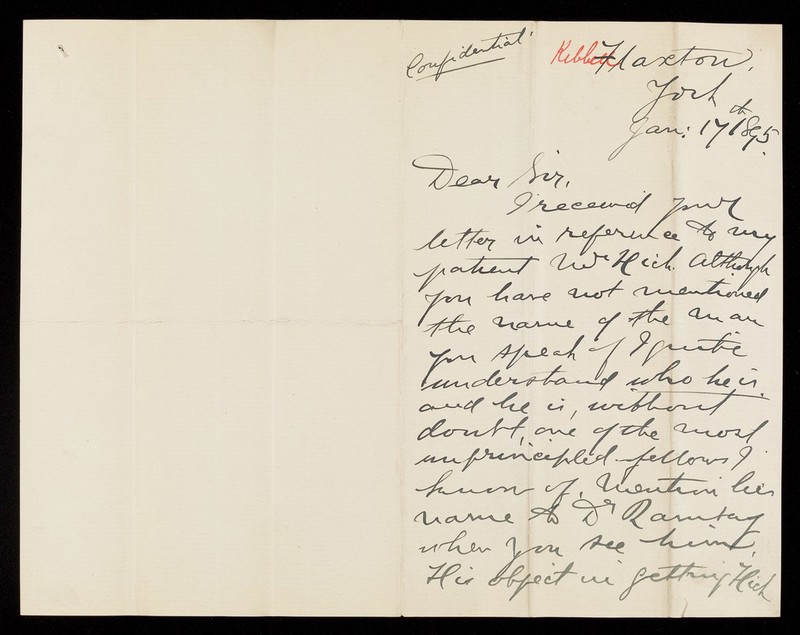 Confidential
Flaxton,
York
Jan: 17th 1895.
Dear Sir,
I received your
letter in reference to my
patient Mr Hick. Although
you have not mentioned
the name of the man
you speak of I quite
understand who he is.
and he is, without
doubt, one of the most
unprincipled fellows I
know of. Mention his
name to Dr
when you see him.
His object in getting Hick